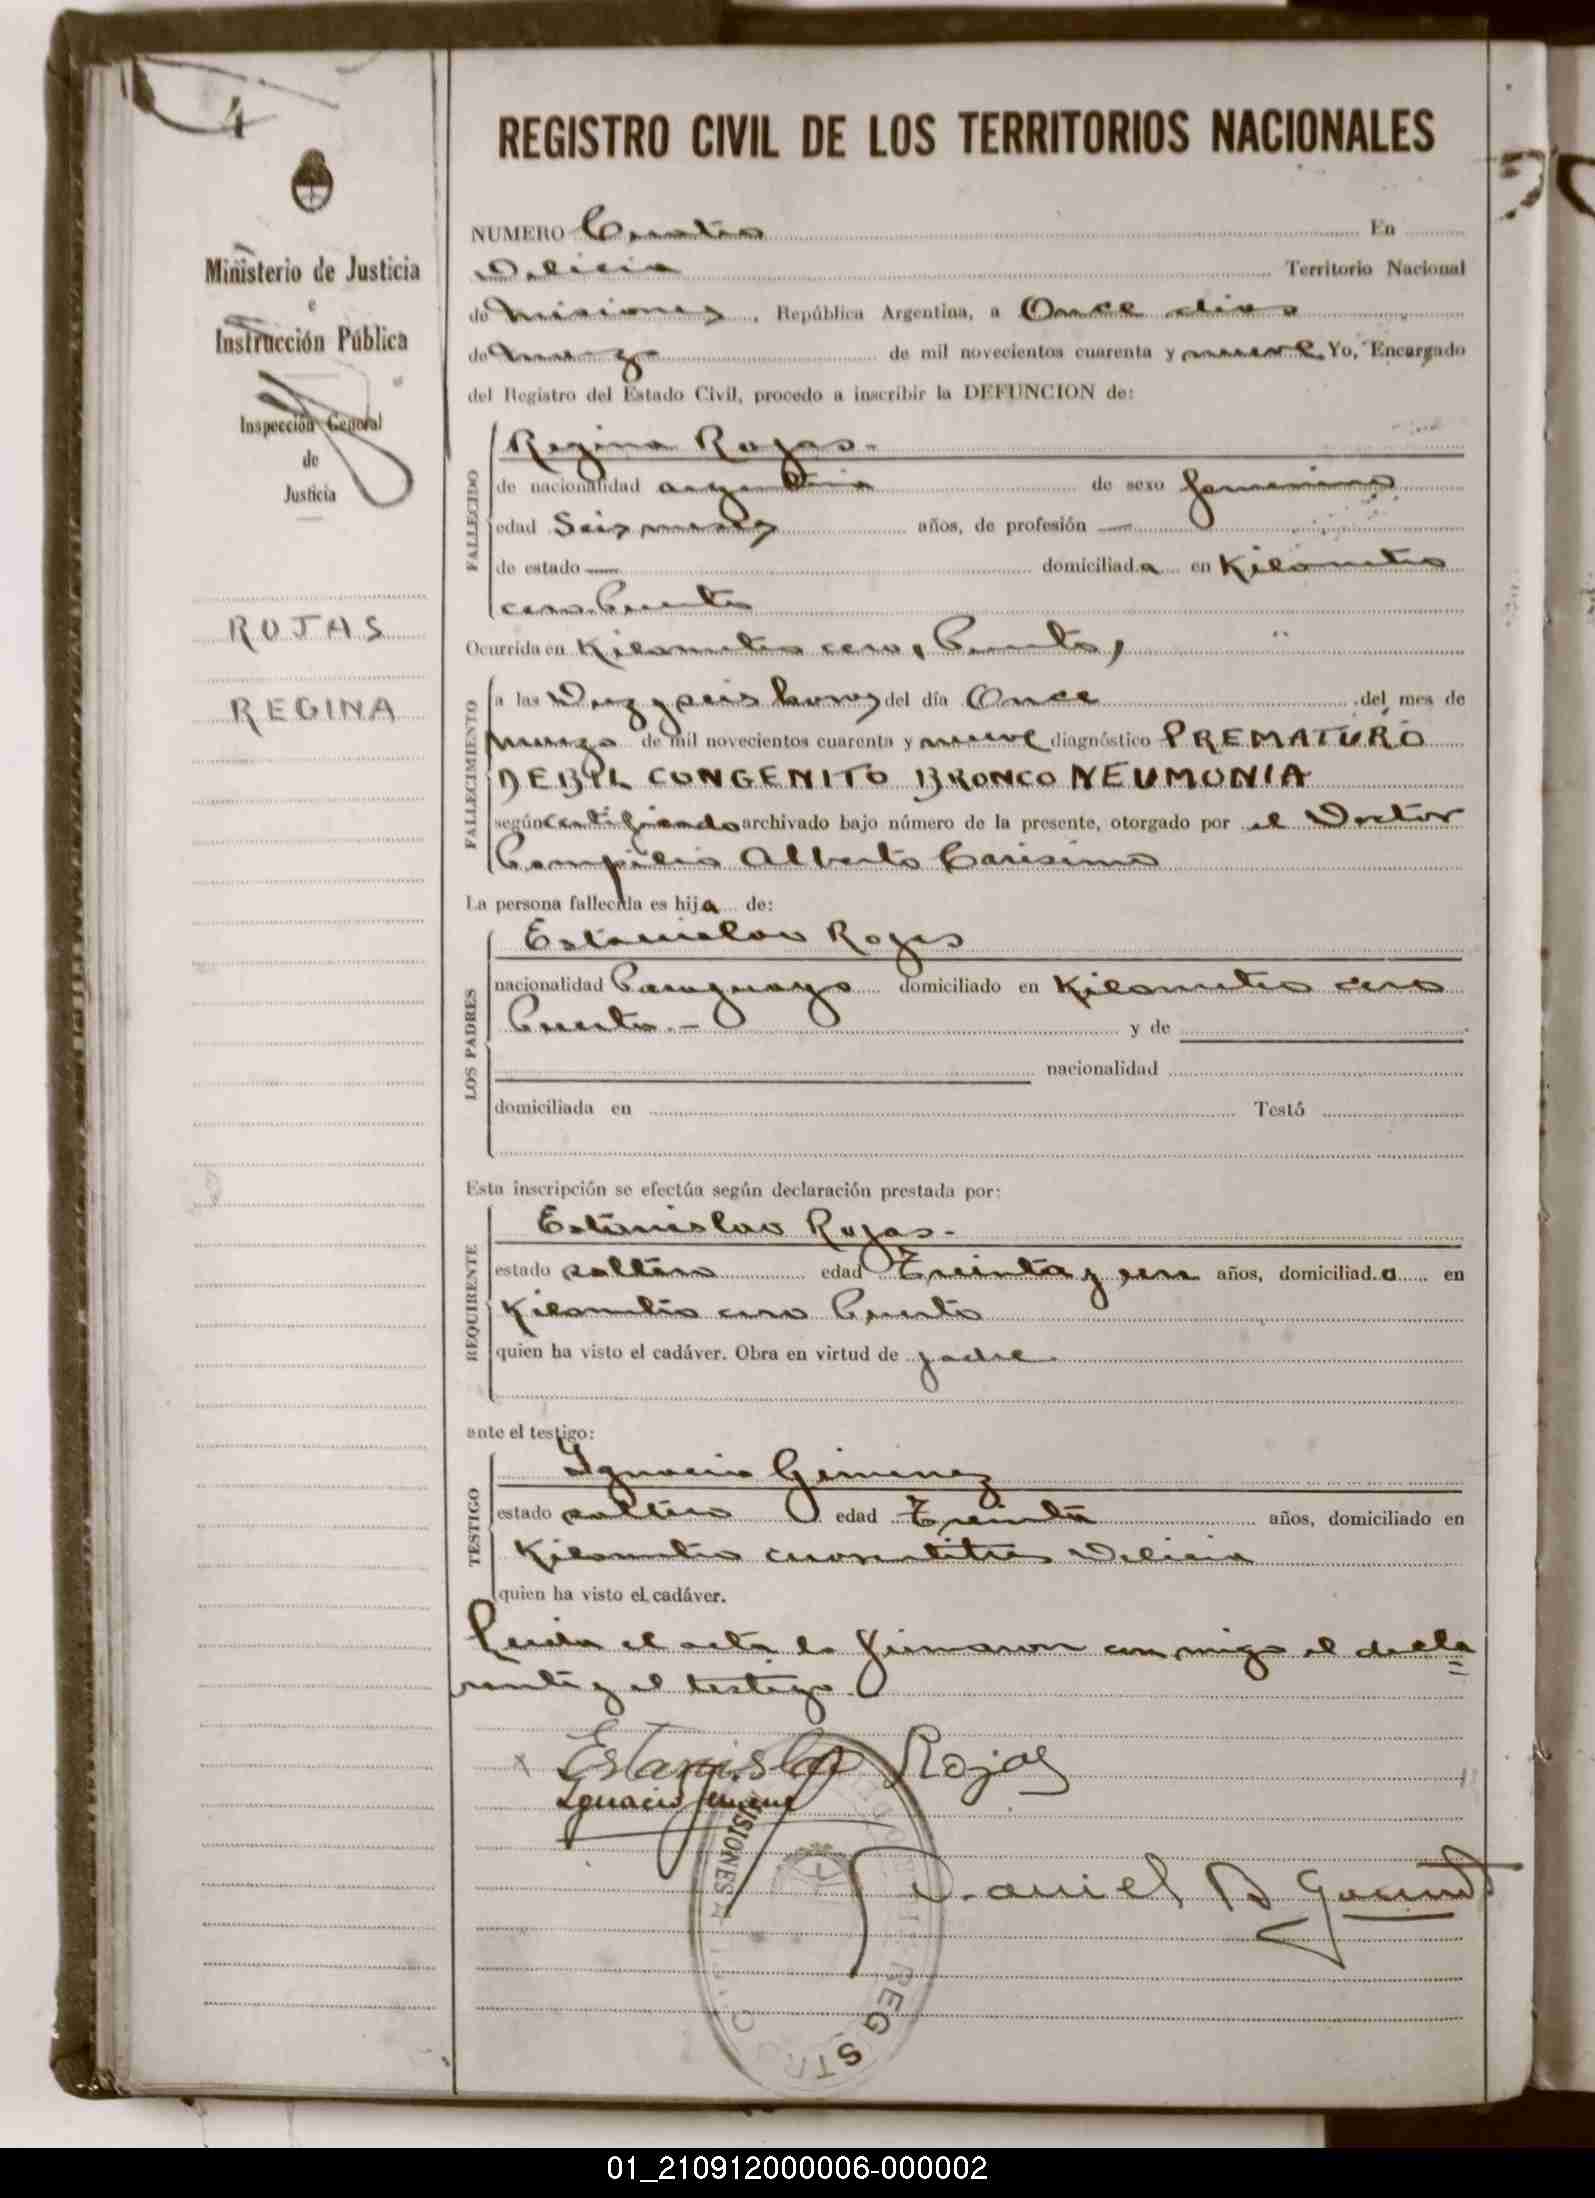 4
REGISTRO CIVIL DE LOS TERRITORIOS NACIONALES
Ministerio de Justicia
e
Instrucción Pública
Inspección General
de
Justicia
ROJAS
REGINA
NUMERO Cuatro En
Delicia Territorio Nacional
de Misiones, República Argentina, a Once dias
de marzo de mil novecientos cuarenta y nueve Yo, Encargado
del Registro del Estado Civil, procedo a inscribir la DEFUNCION de:
FALLECIDO
Regina Rojas-
de nacionalidad argentina de sexo femenino
edad Seis meses años, de profesión —
de estado — domiciliada en Kilometro
cero Puerto
Ocurrida en Kilometro cero, Puerto,
FALLECIMIENTO
a las Diez y seis horas del día Once del mes de
marzo de mil novecientos cuarenta y nueve diagnóstico PREMATURO
DEBIL CONGENITO BRONCO NEUMONIA
según certificado archivado bajo número de la presente, otorgado por el Doctor
Pompilio Alberto Carisimo
La persona fallecida es hija de:
LOS PADRES
Estanislao Rojas
nacionalidad Paraguayo domiciliado en Kilometro cero
Puerto.- y de
nacionalidad
domiciliada en Testó
Esta inscripción se efectúa según declaración prestada por:
REQUIRENTE
Estanislao Rojas-
estado soltero edad Treinta y un años, domiciliado en
Kilometro cero Puerto
quien ha visto el cadáver. Obra en virtud de padre
ante el testigo:
TESTIGO
Ignacio Gimenez
estado soltero edad Treinta años, domiciliado en
Kilometro cuarentitres Delicia
quien ha visto el cadáver.
Leida el acta la firmaron conmigo el decla=
rante y el testigo.
x Estanislao Rojas
Ignacio Jimenez
MISIONES
REGISTRO
Daniel B
01_210912000006-000002